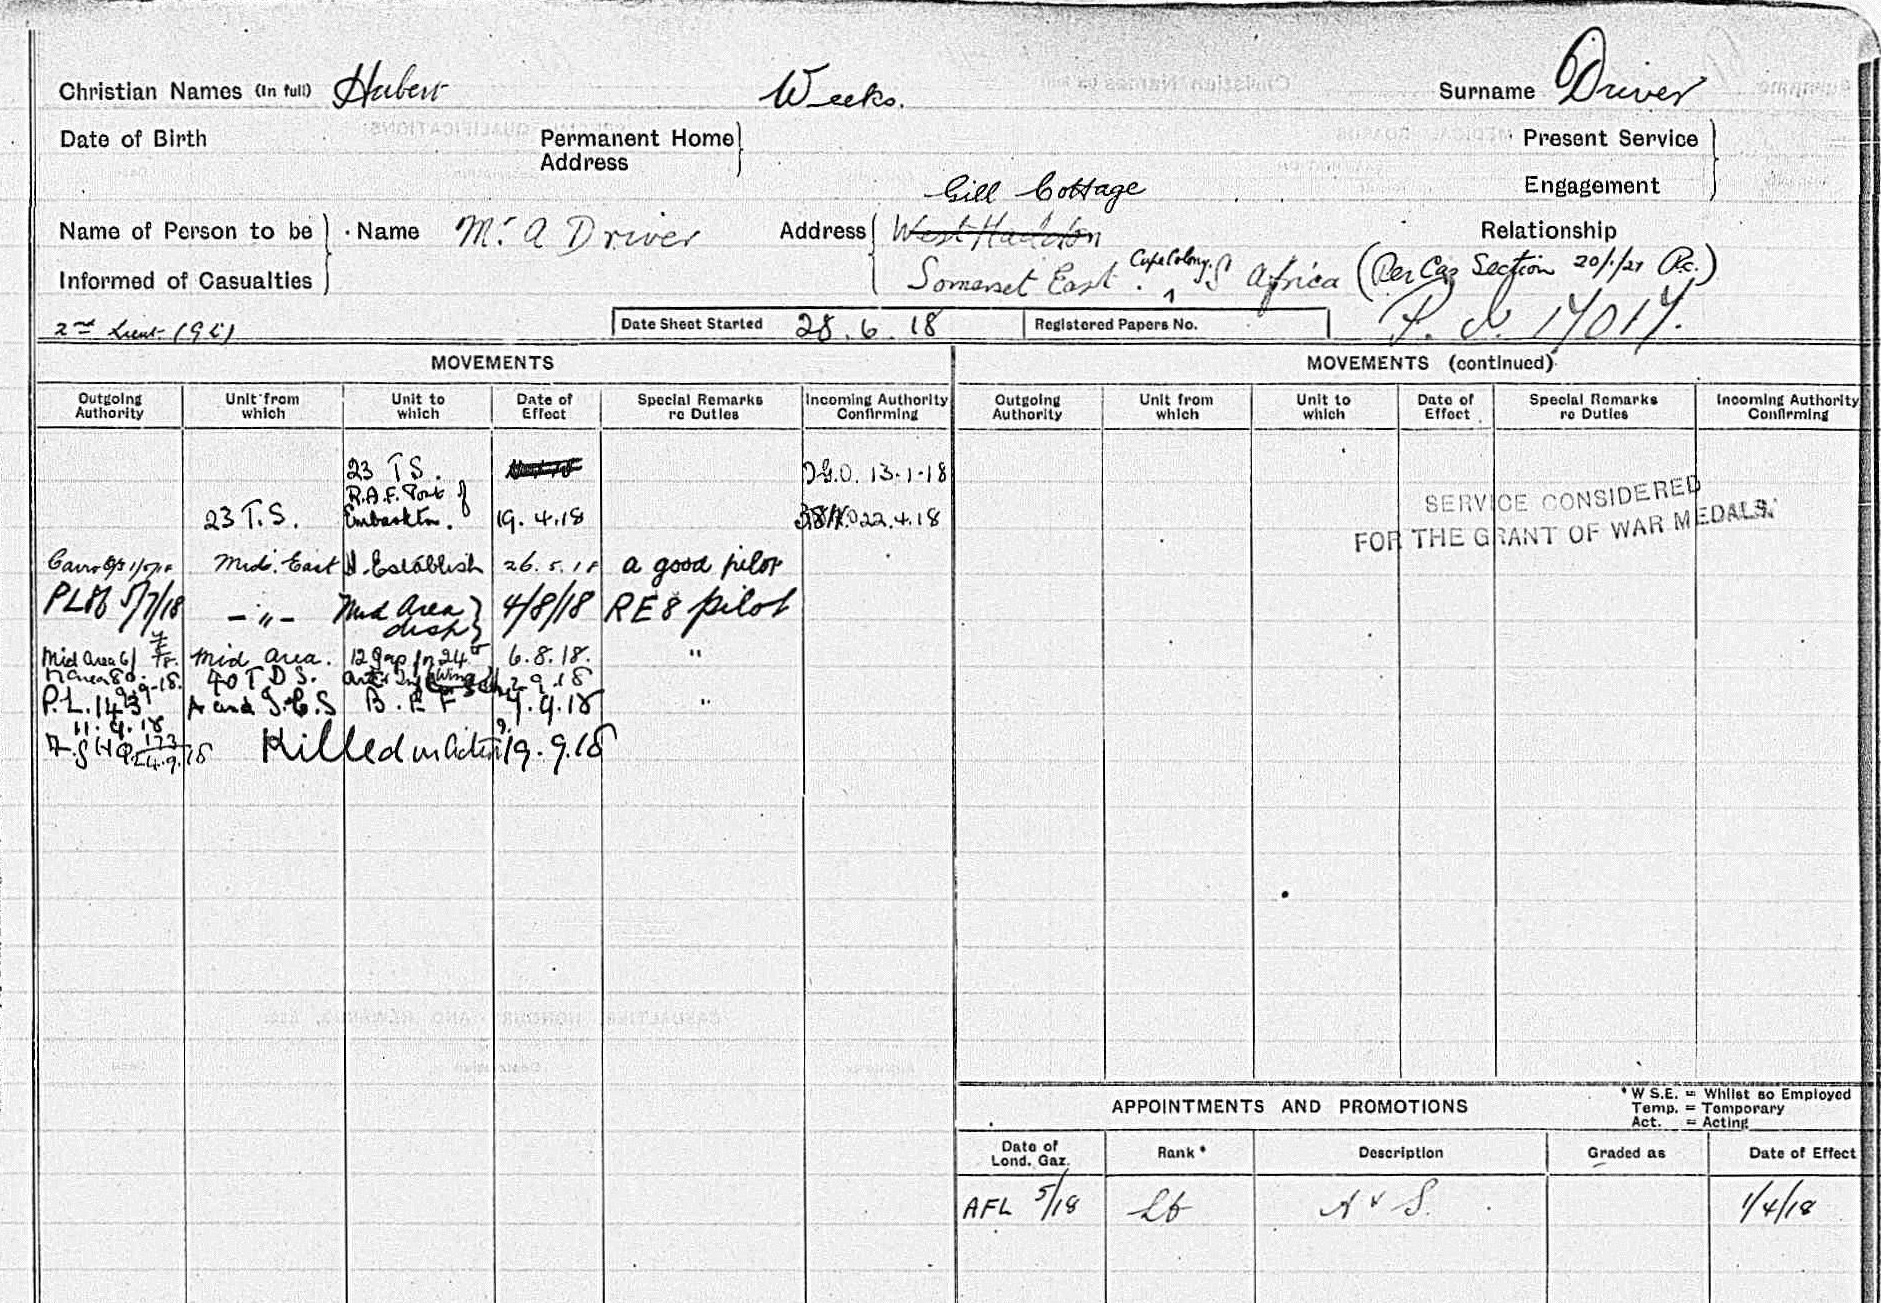 Christian Names (In full) Hubert Weeks. Surname Driver
Date of Birth Permanent Home Address Present Service
Engagement
Gill Cottage
Name of Person to be Informed of Casualties Name Mr. A Driver Address West Haddon Relationship
Somerset East. Cape Colony. S Africa (Per Cas Section 20/1/21 )
2nd Lieut. Date Sheet Started 28.6.18 Registered Papers No. P. 17017.
MOVEMENTS MOVEMENTS (continued)
Outgoing Authority Unit from which Unit to which Date of Effect Special Remarks re Duties Incoming Authority Confirming Outgoing Authority Unit from which Unit to which Date of Effect Special Remarks re Duties Incoming Authority Confirming
23 T S. 13.1.18
R.A.F. Port of
23 T.S. Embarktn. 19.4.18 22.4.18
SERVICE CONSIDERED
FOR THE GRANT OF WAR MEDALS.
Mid. East H. Establish 26.5.18 a good pilot
PL86 5/7/18 - " - Mid Area disp 4/8/18 RE8 pilot
Mid Area 61 Mid Area. 6.8.18. "
40 T D S. 2.9.18
P.L. 143 A and I.C.S B.E F 9.18 "
11.9.18
173 Killed in Action 19.9.18
24.9.18
APPOINTMENTS AND PROMOTIONS
* W S.E. = Whilst so Employed
Temp. = Temporary
Act. = Acting
Date of Lond. Gaz. Rank * Description Graded as Date of Effect
AFL 5/18 Lt A & S. 1/4/18